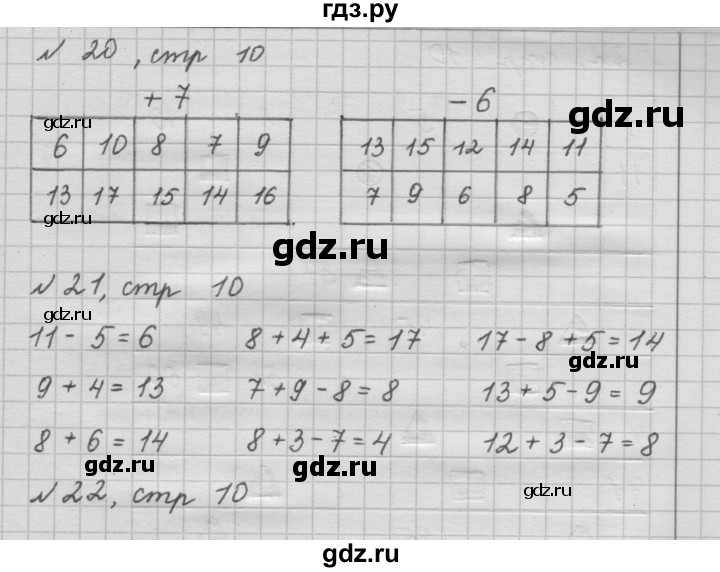 гдз.ру
N 20, стр 10
+ 7
- 6
gdz.ru
gdz.ru
6 10 8 7 9
13 17 15 14 16
13 15 12 14 11
7 9 6 8 5
gdz.ru
N 21, стр 10
gdz.ru
11 - 5 = 6
8 + 4 + 5 = 17
17 - 8 + 5 = 14
gdz.ru
9 + 4 = 13
7 + 9 - 8 = 8
13 + 5 - 9 = 9
8 + 6 = 14
8 + 3 - 7 = 4
12 + 3 - 7 = 8
gdz.ru
gdz.ru
gdz.ru
N 22, стр 10
gdz.ru